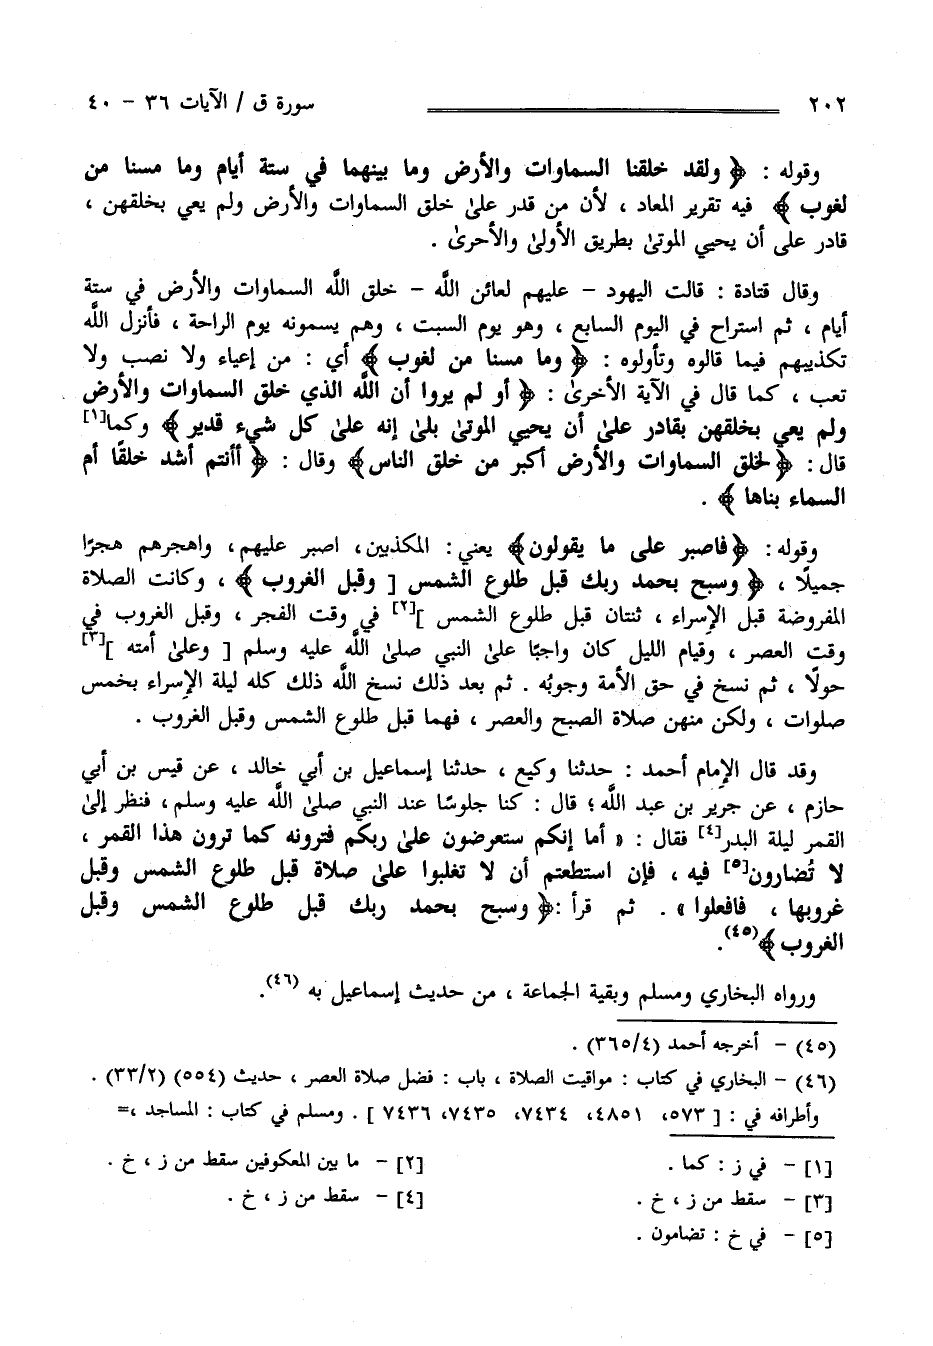 ٢٠٢ سورة ق / الآيات ٣٦ - ٤٠
وقوله : ﴿ ولقد خلقنا السماوات والأرض وما بينهما في ستة أيام وما مسنا من
لغوب ﴾ فيه تقرير المعاد ، لأن من قدر علىٰ خلق السماوات والأرض ولم يعي بخلقهن ،
قادر على أن يحيي الموتىٰ بطريق الأولىٰ والأحرىٰ .
وقال قتادة : قالت اليهود - عليهم لعائن اللَّه - خلق اللَّه السماوات والأرض في ستة
أيام ، ثم استراح في اليوم السابع ، وهو يوم السبت ، وهم يسمونه يوم الراحة ، فأنزل اللَّه
تكذيبهم فيما قالوه وتأولوه : ﴿ وما مسنا من لغوب ﴾ أي : من إعياء ولا نصب ولا
تعب ، كما قال في الآية الأخرىٰ : ﴿ أو لم يروا أن اللَّه الذي خلق السماوات والأرض
ولم يعي بخلقهن بقادر علىٰ أن يحيي الموتىٰ بلىٰ إنه علىٰ كل شيء قدير ﴾ وكما[١]
قال : ﴿ لخلق السماوات والأرض أكبر من خلق الناس﴾ وقال : ﴿ أأنتم أشد خلقًا أم
السماء بناها ﴾ .
وقوله: ﴿فاصبر على ما يقولون﴾ يعني: المكذبين، اصبر عليهم، واهجرهم هجرًا
جميلًا ، ﴿ وسبح بحمد ربك قبل طلوع الشمس [ وقبل الغروب ﴾ ، وكانت الصلاة
المفروضة قبل الإسراء ، ثنتان قبل طلوع الشمس ][٢] في وقت الفجر ، وقبل الغروب في
وقت العصر ، وقيام الليل كان واجبًا علىٰ النبي صلىٰ اللَّه عليه وسلم [ وعلىٰ أمته ][٣]
حولًا ، ثم نسخ في حق الأمة وجوبُه . ثم بعد ذلك نسخ اللَّه ذلك كله ليلة الإسراء بخمس
صلوات ، ولكن منهن صلاة الصبح والعصر ، فهما قبل طلوع الشمس وقبل الغروب .
وقد قال الإمام أحمد : حدثنا وكيع ، حدثنا إسماعيل بن أبي خالد ، عن قيس بن أبي
حازم ، عن جرير بن عبد اللَّه ؛ قال : كنا جلوسًا عند النبي صلىٰ اللَّه عليه وسلم ، فنظر إلىٰ
القمر ليلة البدر[٤] فقال : « أما إنكم ستعرضون علىٰ ربكم فترونه كما ترون هذا القمر ،
لا تُضارون[٥] فيه ، فإن استطعتم أن لا تغلبوا علىٰ صلاة قبل طلوع الشمس وقبل
غروبها ، فافعلوا » . ثم قرأ :﴿ وسبح بحمد ربك قبل طلوع الشمس وقبل
الغروب ﴾(٤٥).
ورواه البخاري ومسلم وبقية الجماعة ، من حديث إسماعيل به (٤٦).
(٤٥) - أخرجه أحمد (٣٦٥/٤) .
(٤٦) - البخاري في كتاب : مواقيت الصلاة ، باب : فضل صلاة العصر ، حديث (٥٥٤) (٣٣/٢) .
وأطرافه في : [ ٥٧٣، ٤٨٥١، ٧٤٣٤، ٧٤٣٥، ٧٤٣٦ ] . ومسلم في كتاب : المساجد ،=
[١] - في ز : كما . [٢] - ما بين المعكوفين سقط من ز ، خ .
[٣] - سقط من ز ، خ . [٤] - سقط من ز ، خ .
[٥] - في خ : تضامون .